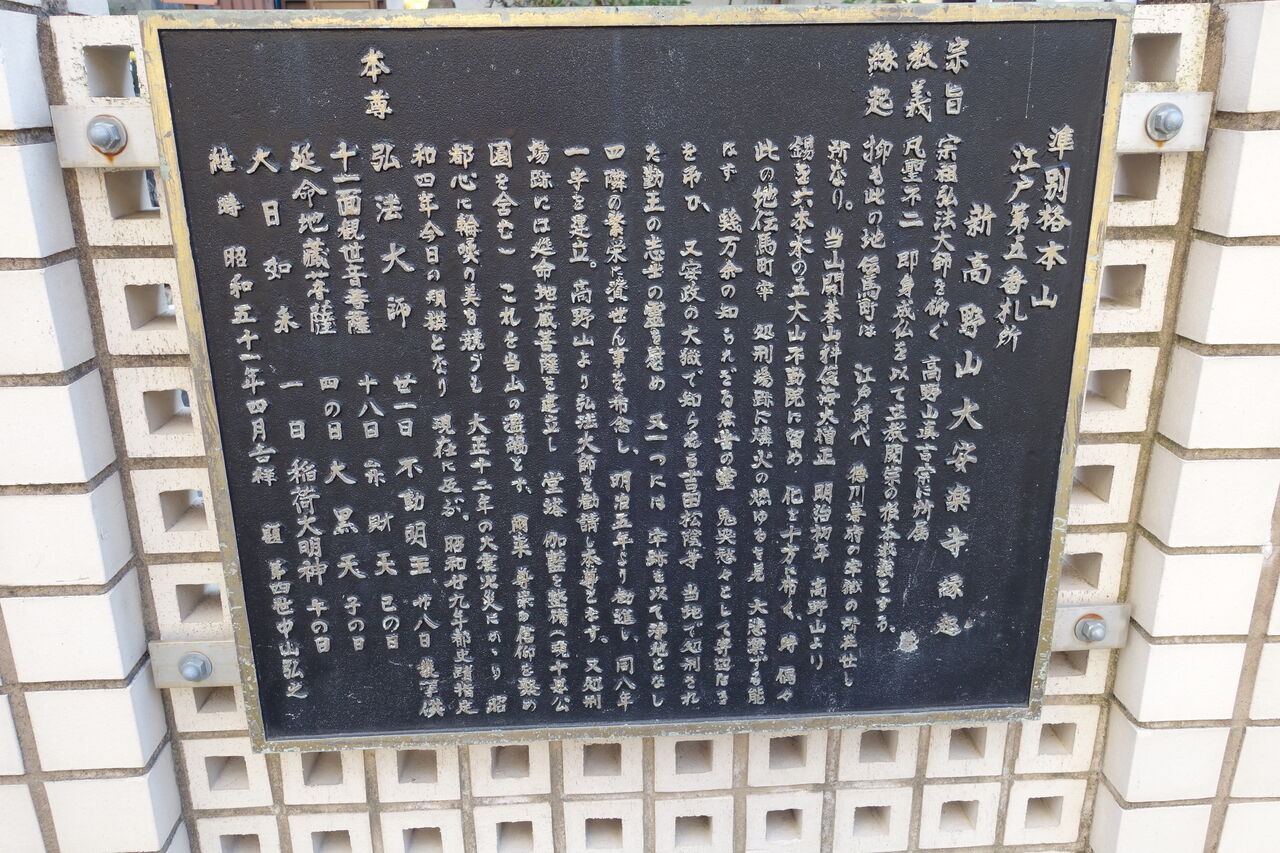 準別格本山
江戸第五番札所
新高野山大安楽寺縁起
宗旨 宗祖弘法大師を仰ぐ 高野山真言宗に所属
教義 凡聖不二 即身成仏を以て立教開宗の根本教義とする。
縁起 抑も此の地伝馬町は 江戸時代 徳川幕府の牢獄の所在せし
所なり。 当山開基山科俊海大僧正 明治初年 高野山より
錫を六本木の五大山不動院に留め 化を十方に布く、時 偶々
此の地伝馬町牢 処刑場跡に燐火の燃ゆるを見 大悲禁ずる能
はず 幾万余の知られざる業苦の霊 鬼哭愁々として昇迢なき
を弔ひ、 又安政の大獄で知らるる吉田松陰等 当地で処刑され
た勤王の志士の霊を慰め 又一つには 牢跡を以て浄地となし
四隣の繁栄に資せん事を希念し、明治五年より勧進し、同八年
一宇を建立。高野山より弘法大師を勧請し本尊となす。又処刑
場跡には延命地蔵菩薩を建立し 堂塔 伽藍を整備(現十思公
園を含む) これを当山の道場とす。 爾来 尊崇の信仰を聚め
都心に輪喚の美を競うも 大正十二年の大震火災にかゝり 昭
和四年今日の規模となり 現在に及ぶ。 昭和廿九年都史蹟指定
本尊 弘法大師 廿一日 不動明王 廿八日 護摩供
十一面観世音菩薩 十八日 弁財天 己の日
延命地蔵菩薩 四の日 大黒天 子の日
大日如来 一日 稲荷大明神 午の日
維時 昭和五十一年四月吉祥 第四世中山弘之